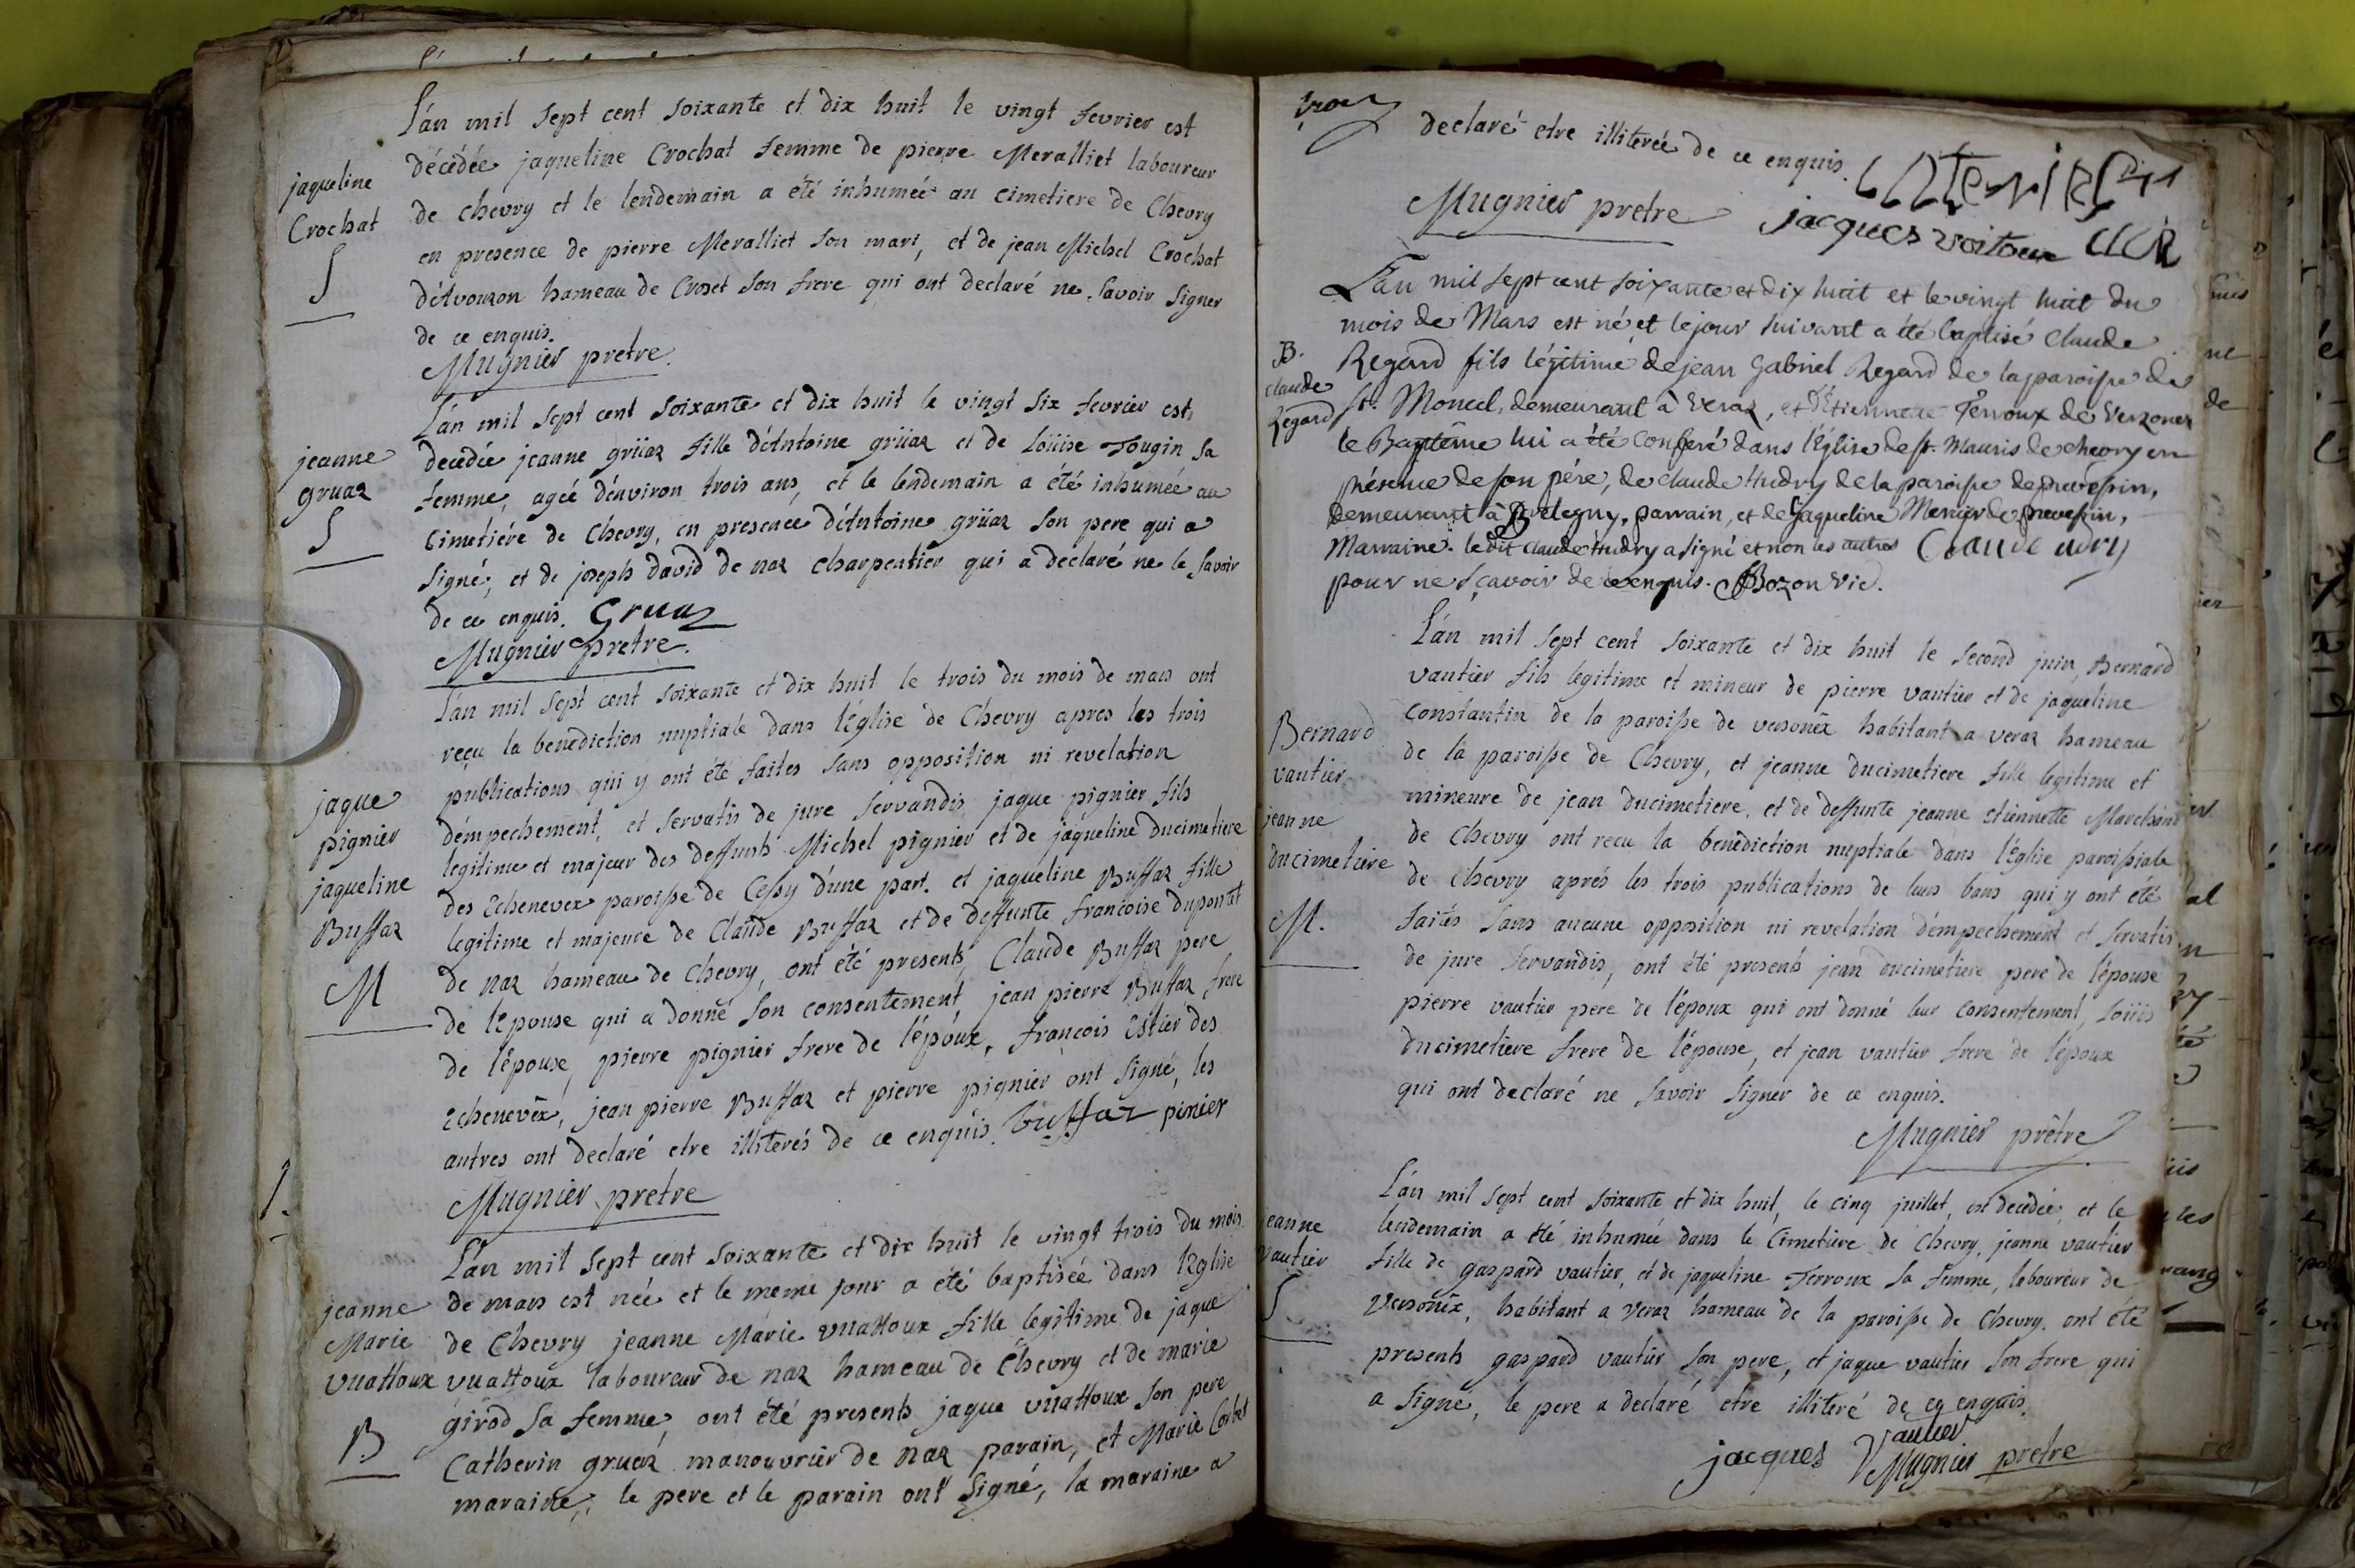 L'an mil sept cent soixante et dix huit le vingt fevrier est
décédée jaqueline Crochat femme de pierre Meralliet laboureur
de chevry et le lendemain a été inhumée au cimetiere de Chevry
en presence de pierre Meralliet son mari, et de jean Michel Crochat
d'Avouzon hameau de Crozet son frere qui ont declaré ne savoir signer
de ce enquis.
Mugnier pretre.
jaqueline
Crochat
S
L'an mil sept cent soixante et dix huit le vingt six fevrier est
decedée jeanne grüaz fille d'Antoine grüaz et de Loüise Tougin sa
femme, agée d'environ trois ans, et le lendemain a été inhumée au
Cimetiére de Chevry, en presence d'Antoine grüaz son pere qui a
signé, et de joseph david de naz charpentier qui a declaré ne le savoir
de ce enquis. Gruaz
Mugnier pretre.
jeanne
gruaz
S
L'an mil sept cent soixante et dix huit le trois du mois de mars ont
reçu la benediction nuptiale dans l'Eglise de Chevry apres les trois
publications qui y ont été faites sans opposition ni revelation
d'empechement, et servatis de jure servandis jaque pignier fils
legitime et majeur des deffunts Michel pignier et de jaqueline ducimetiere
des Echenevex paroisse de Cessy d'une part. et jaqueline Buffaz fille
legitime et majeure de Claude Buffaz et de deffunte francoise dupontet
de naz hameau de Chevry, ont été presents Claude Buffaz pere
de l'Epouse qui a donné son consentement jean pierre Buffaz frere
de l'épouse, pierre pignier frere de l'époux, françois Estier des
Echenevex, jean pierre Buffaz et pierre pignier ont signé, les
autres ont declaré etre illiterés de ce enquis. buffaz pinier
Mugnier pretre
jaque
pignier
jaqueline
Buffaz
M
L'an mil sept cent soixante et dix huit le vingt trois du mois
de mars est née et le meme jour a été baptisée dans l'Eglise
de Chevry jeanne Marie vuattoux fille legitime de jaque
vuattoux laboureur de naz hameau de Chevry et de marie
girod sa femme, ont été presents jaque vuattoux son pere
Catherin gruaz manouvrier de naz parain, et Marie Corbet
maraine, le pere et le parain ont signé, la maraine a
jeanne
Marie
vuattoux
B
declaré etre illiterée de ce enquis.
Mugnier pretre jacques
L'an mil sept cent soixante et dix huit et le vingt huit du
mois de Mars est né et le jour suivant a été baptisé Claude
Regard fils légitime de jean Gabriel Regard de la paroisse de
st. Moncel, demeurant à Veraz, et d'Etiennette Terroux de Verzonex
le Baptême lui a été conferé dans l'Eglise de st. Mauris de chevry en
présence de son pére, de claude Hudry de la paroisse de prevessin,
demeurant à Bretegny, parrain, et de Jaqueline Menier de prevessin,
Marraine. le dit claude Hudry a signé et non les autres Claude udry
pour ne sçavoir de ce enquis. Bozon vic.
B.
claude
Regard
L'an mil sept cent soixante et dix huit le second juin, Bernard
vautier fils legitime et mineur de pierre vautier et de jaqueline
constantin de la paroisse de versonex habitant a veraz hameau
de la paroisse de Chevry, et jeanne ducimetiere fille legitime et
mineure de jean ducimetiere, et de deffunte jeanne etiennette Marchand
de Chevry ont recu la benediction nuptiale dans l'Eglise paroissiale
de Chevry aprés les trois publications de leurs bans qui y ont été
faites sans aucune opposition ni revelation d'empechement et servatis
de jure servandis, ont été presents jean ducimetiere pere de l'épouse
pierre vautier pere de l'époux qui ont donné leur consentement, Loüis
ducimetiere frere de l'épouse, et jean vautier frere de l'époux
qui ont declaré ne savoir signer de ce enquis.
Mugnier prêtre
Bernard
vautier
jeanne
ducimetiere
M.
L'an mil sept cent soixante et dix huit, le cinq juillet, est decedée, et le
lendemain a été inhumée dans le Cimetiere de Chevry, jeanne vautier
fille de gaspard vautier, et de jaqueline Terroux sa femme, laboureur de
Versonex, habitant a Veraz hameau de la paroisse de Chevry. ont été
presents gaspard vautier son pere, et jaque vautier son frere qui
a signé, le pere a declaré etre illiteré de ce enquis.
jacques Vautier
Mugnier pretre
jeanne
vautier
S